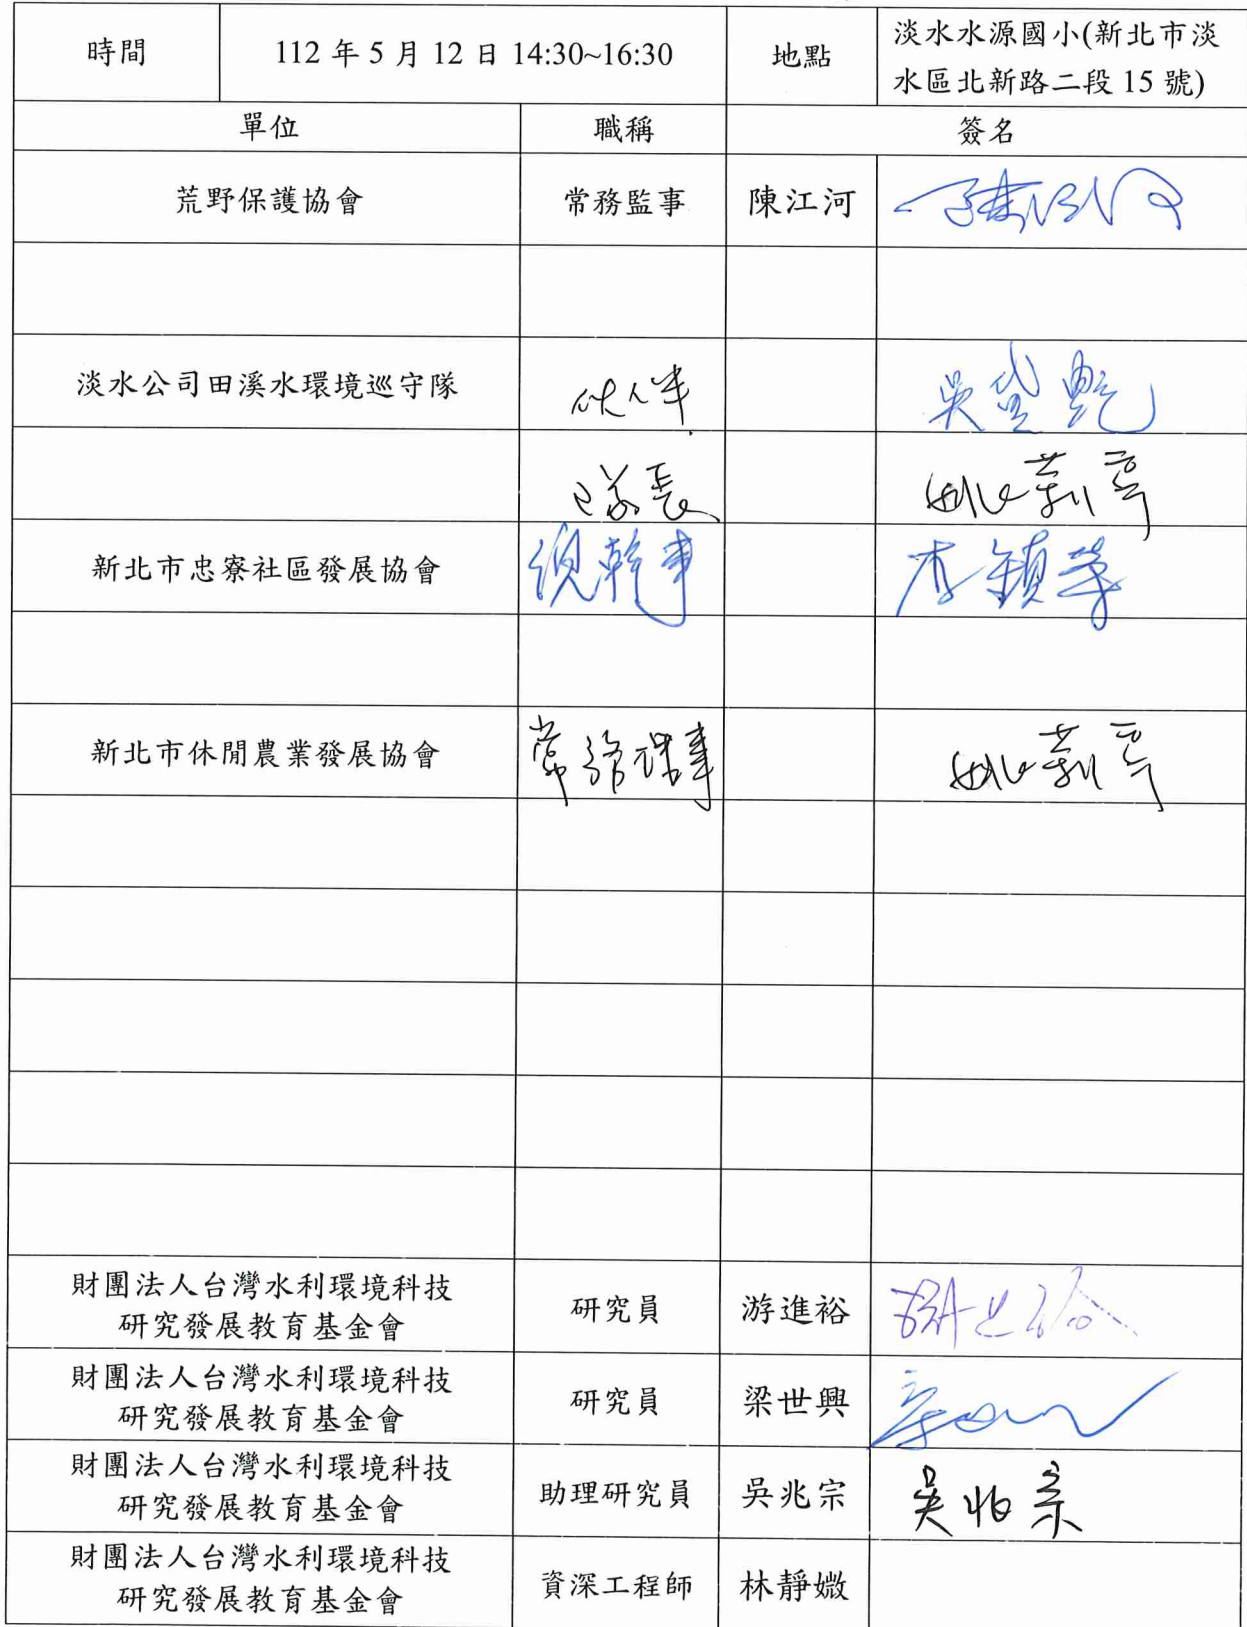 時間 112 年 5 月 12 日 14:30~16:30 地點 淡水水源國小(新北市淡
水區北新路二段 15 號)
單位 職稱 簽名
荒野保護協會 常務監事 陳江河
淡水公司田溪水環境巡守隊 吳
隊長 姚莉亭
新北市忠寮社區發展協會 總幹事 李鎮榮
新北市休閒農業發展協會 常務理事 姚莉亭
財團法人台灣水利環境科技
研究發展教育基金會 研究員 游進裕
財團法人台灣水利環境科技
研究發展教育基金會 研究員 梁世興
財團法人台灣水利環境科技
研究發展教育基金會 助理研究員 吳兆宗 吳兆宗
財團法人台灣水利環境科技
研究發展教育基金會 資深工程師 林靜媺